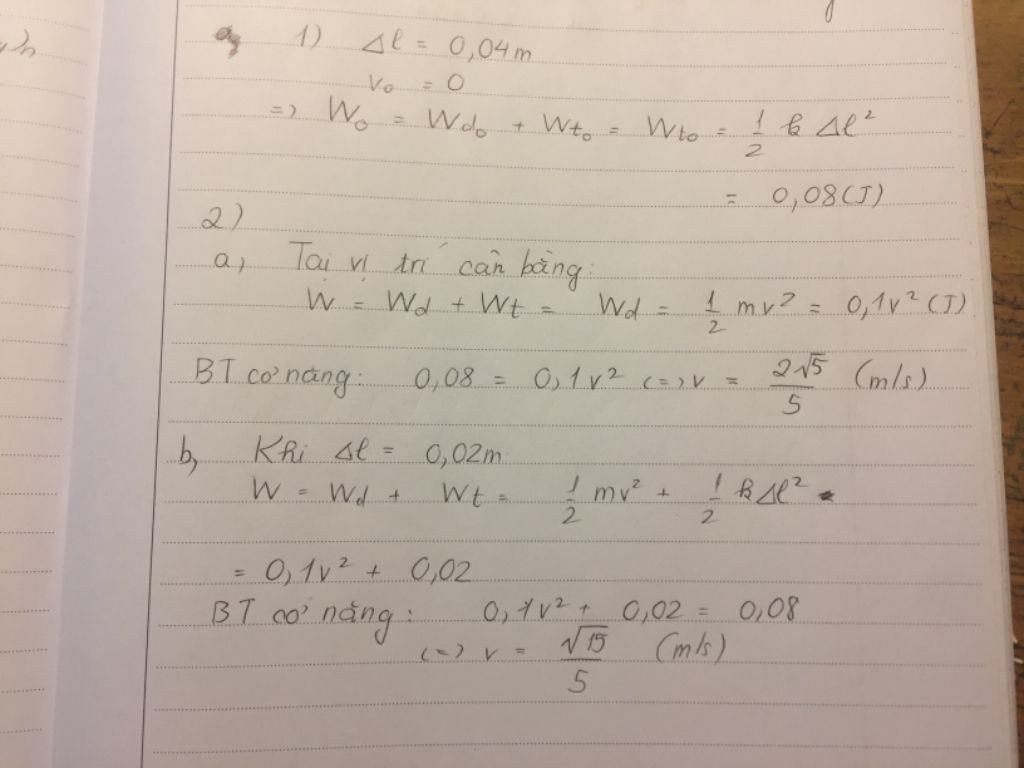 1) Δl = 0,04m
v₀ = 0
=> W₀ = Wd₀ + Wt₀ = Wt₀ = 1/2 k Δl²
= 0,08(J)
2)
a, Tại vị trí cân bằng:
W = Wd + Wt = Wd = 1/2 mv² = 0,1v² (J)
BT cơ năng: 0,08 = 0,1v² (=) v = 2√5/5 (m/s)
b, Khi Δl = 0,02m
W = Wd + Wt = 1/2 mv² + 1/2 kΔl²
= 0,1v² + 0,02
BT cơ năng: 0,1v² + 0,02 = 0,08
(=) v = √15/5 (m/s)